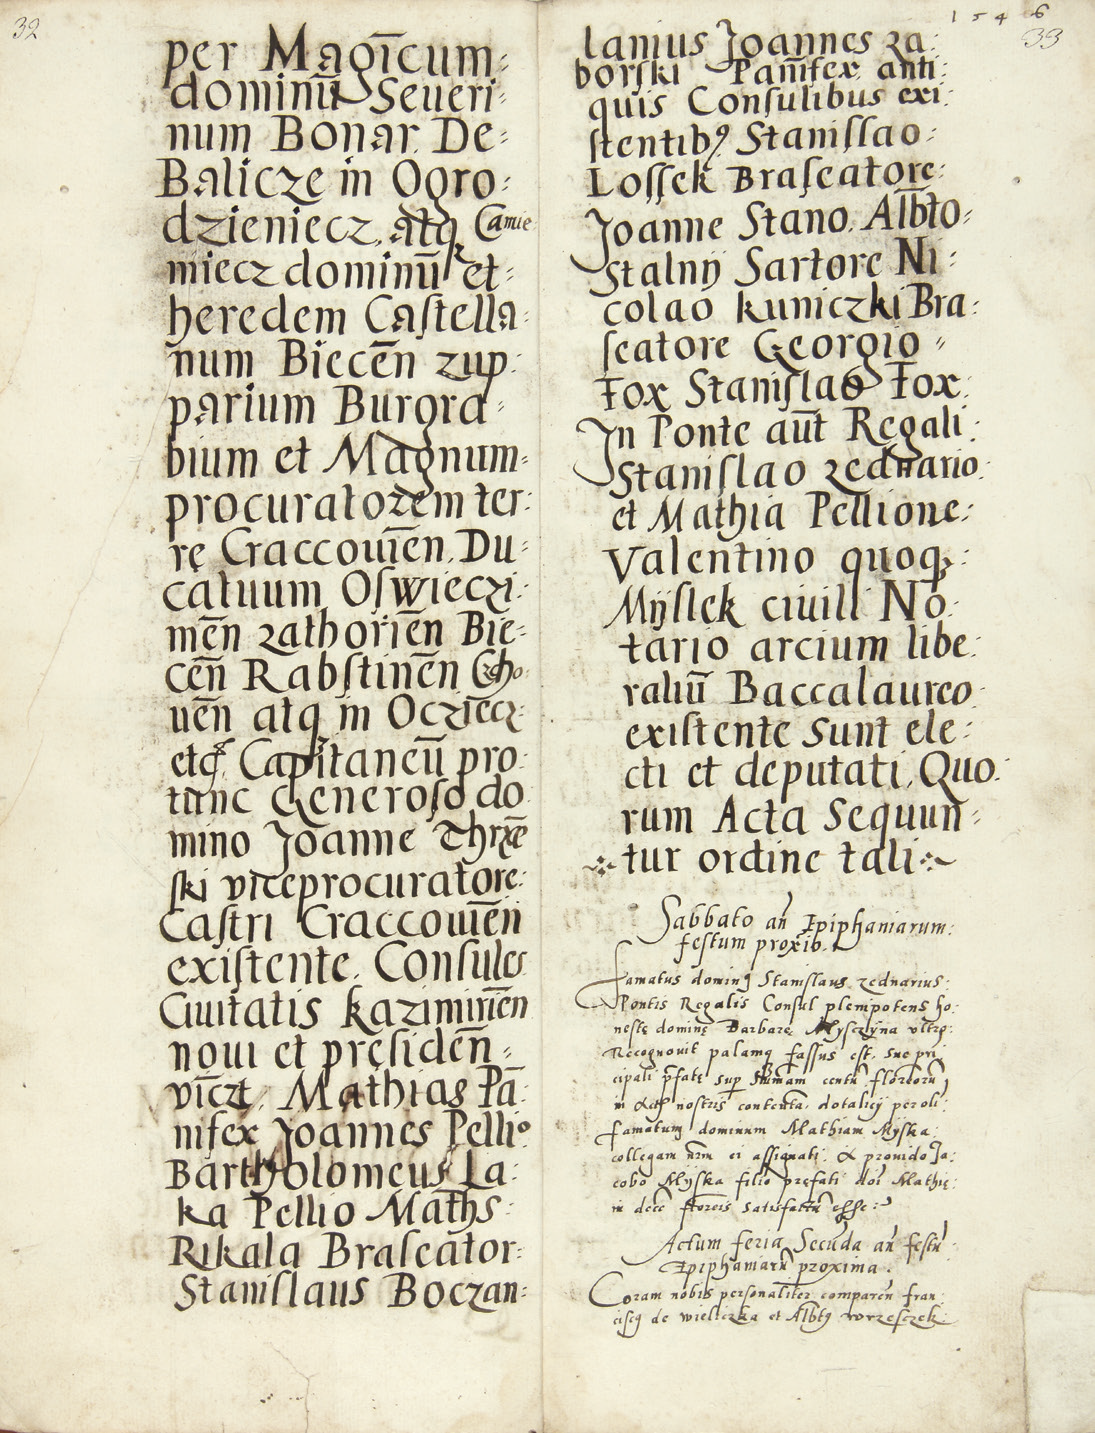 32
per Magīcum=
dominū Seueri=
num Bonar. De=
Balicze in Ogro=
dzieniecz, atq Camie
miecz dominū et=
heredem Caſtella=
num Biecēn zup
parium Burgra=
bium et Magnum=
procuratorem ter=
rę Craccouiēn. Du=
catuum Oſwieczi=
mēn zathoriēn Bie=
cēn Rabſtinēn Czcho
uēn atq in Ocziecz
etc̄. Capitaneū pro
tunc Generoſo do
mino Joanne
ſki viceprocuratore
Caſtri Craccouiēn
exiſtente. Conſules
Ciuitatis kazimiriēn
noui et pręſidēn=
vicꝫt. Mathias Pā
nifex Joannes Pellio
Bartholomeus La=
ka Pellio Maths
Rikala Braſeator=
Staniſlaus Boczan=
1546
33
lanius Joannes za=
borſki Pan̄ifex anti=
quis Conſulibus exi=
ſtentibꝰ Staniſſao=
Loſſek Braſeatore=
Joanne Stano. Alb̄to=
Stalnij Sartore Ni=
colao kuniczki Bra=
ſeatore Georgio=
Fox Staniſlao Fox
In Ponte aūt Regali
Staniſlao zednario
et Mathia Pellione=
Valentino quoqꝫ
Mÿſlek ciuili No=
tario arcium libe=
raliū Baccalaureo
exiſtente sunt ele=
cti et deputati, Quo
rum Acta Sequun=
tur ordine tali
Sabbato an̄ Epiphaniarum
feſtum proxīo.
Famatus dominꝰ Staniſlaus zednarius
Pontis Regalis Conſul plenipotens ho
neſtę dominę Barbarę Myſczÿna
Recognouit palamqꝫ faſſus eſt, suę pri
cipali p̄fatę sup sum̄am centū florenorū
in Actis nostris contenta, dotalicÿ per oli
famatum dominum Mathiam Mÿſka
collegam nr̄m ei aſſignati & prouido Ja=
cobo Mÿſka filio pręfati doī Mathię
in decē florenis satiſfactū eſſe
Actum feria Secūda an̄ feſtū
Epiphaniarū proxima.
Coram nobis perſonaliter comparēn fran
ciſcꝰ de wieliczka et Alb̄tꝰ wrzeſczek